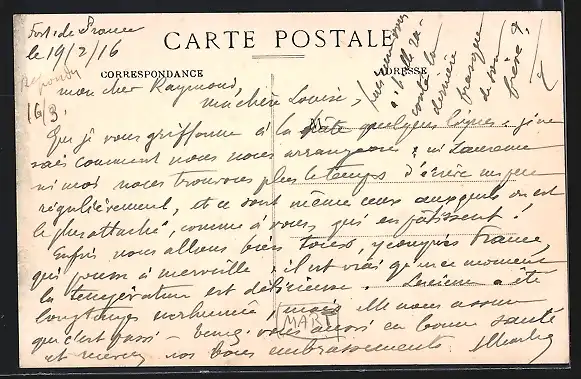 Fort-de-France
le 19/2/16
CARTE POSTALE
CORRESPONDANCE
ADRESSE
Repondu
16/3.
mon cher Raymond,
ma chère Louise,
Que je vous griffonne à la hâte quelques lignes. je ne
sais comment nous nous arrangeons, ni
ni moi nous trouvons plus le temps d'écrire un peu
régulièrement, et ce sont même ceux auxquels on est
le plus attaché, comme à vous, qui en pâtissent!
Enfin nous allons bien tous, y compris France,
qui pousse à merveille; il est vrai qu'en ce moment
la température est délicieuse. Lucienne a été
longtemps enrhumée, mais elle nous assure
que c'est passé - Tenez-vous aussi en bonne santé
et recevez nos bons embrassements.
MART
la
dernière
frasque
de son
père?